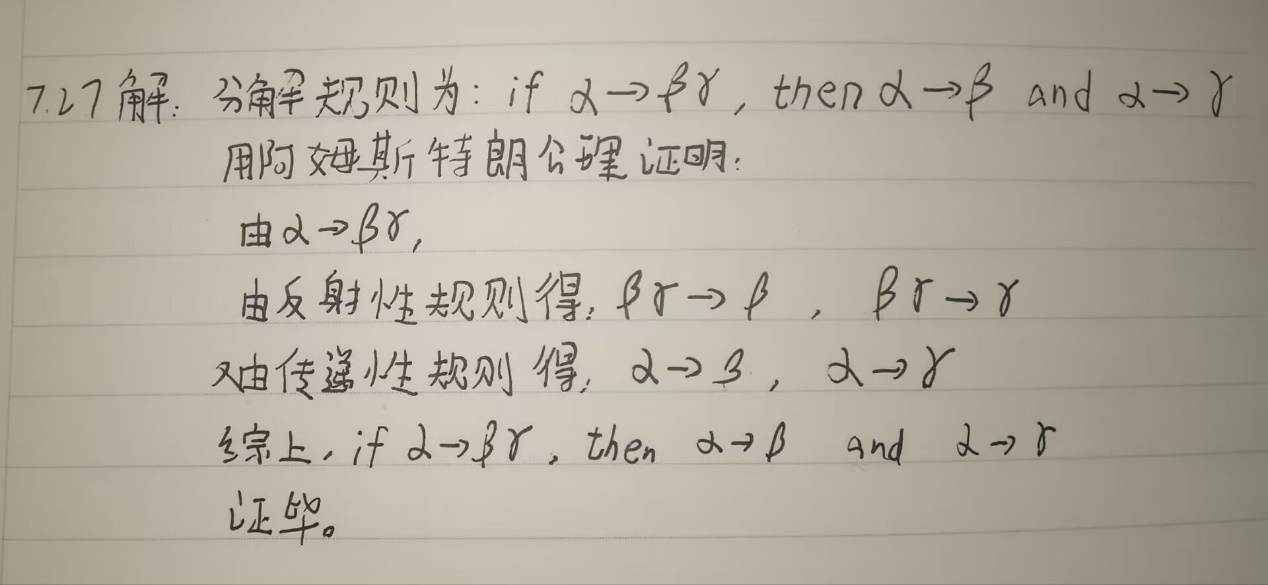 7.27 解: 分解规则为: if α→βγ, then α→β and α→γ
用阿姆斯特朗公理证明:
由α→βγ,
由反射性规则得, βγ→β, βγ→γ
又由传递性规则得, α→β, α→γ
综上, if α→βγ, then α→β and α→γ
证毕。